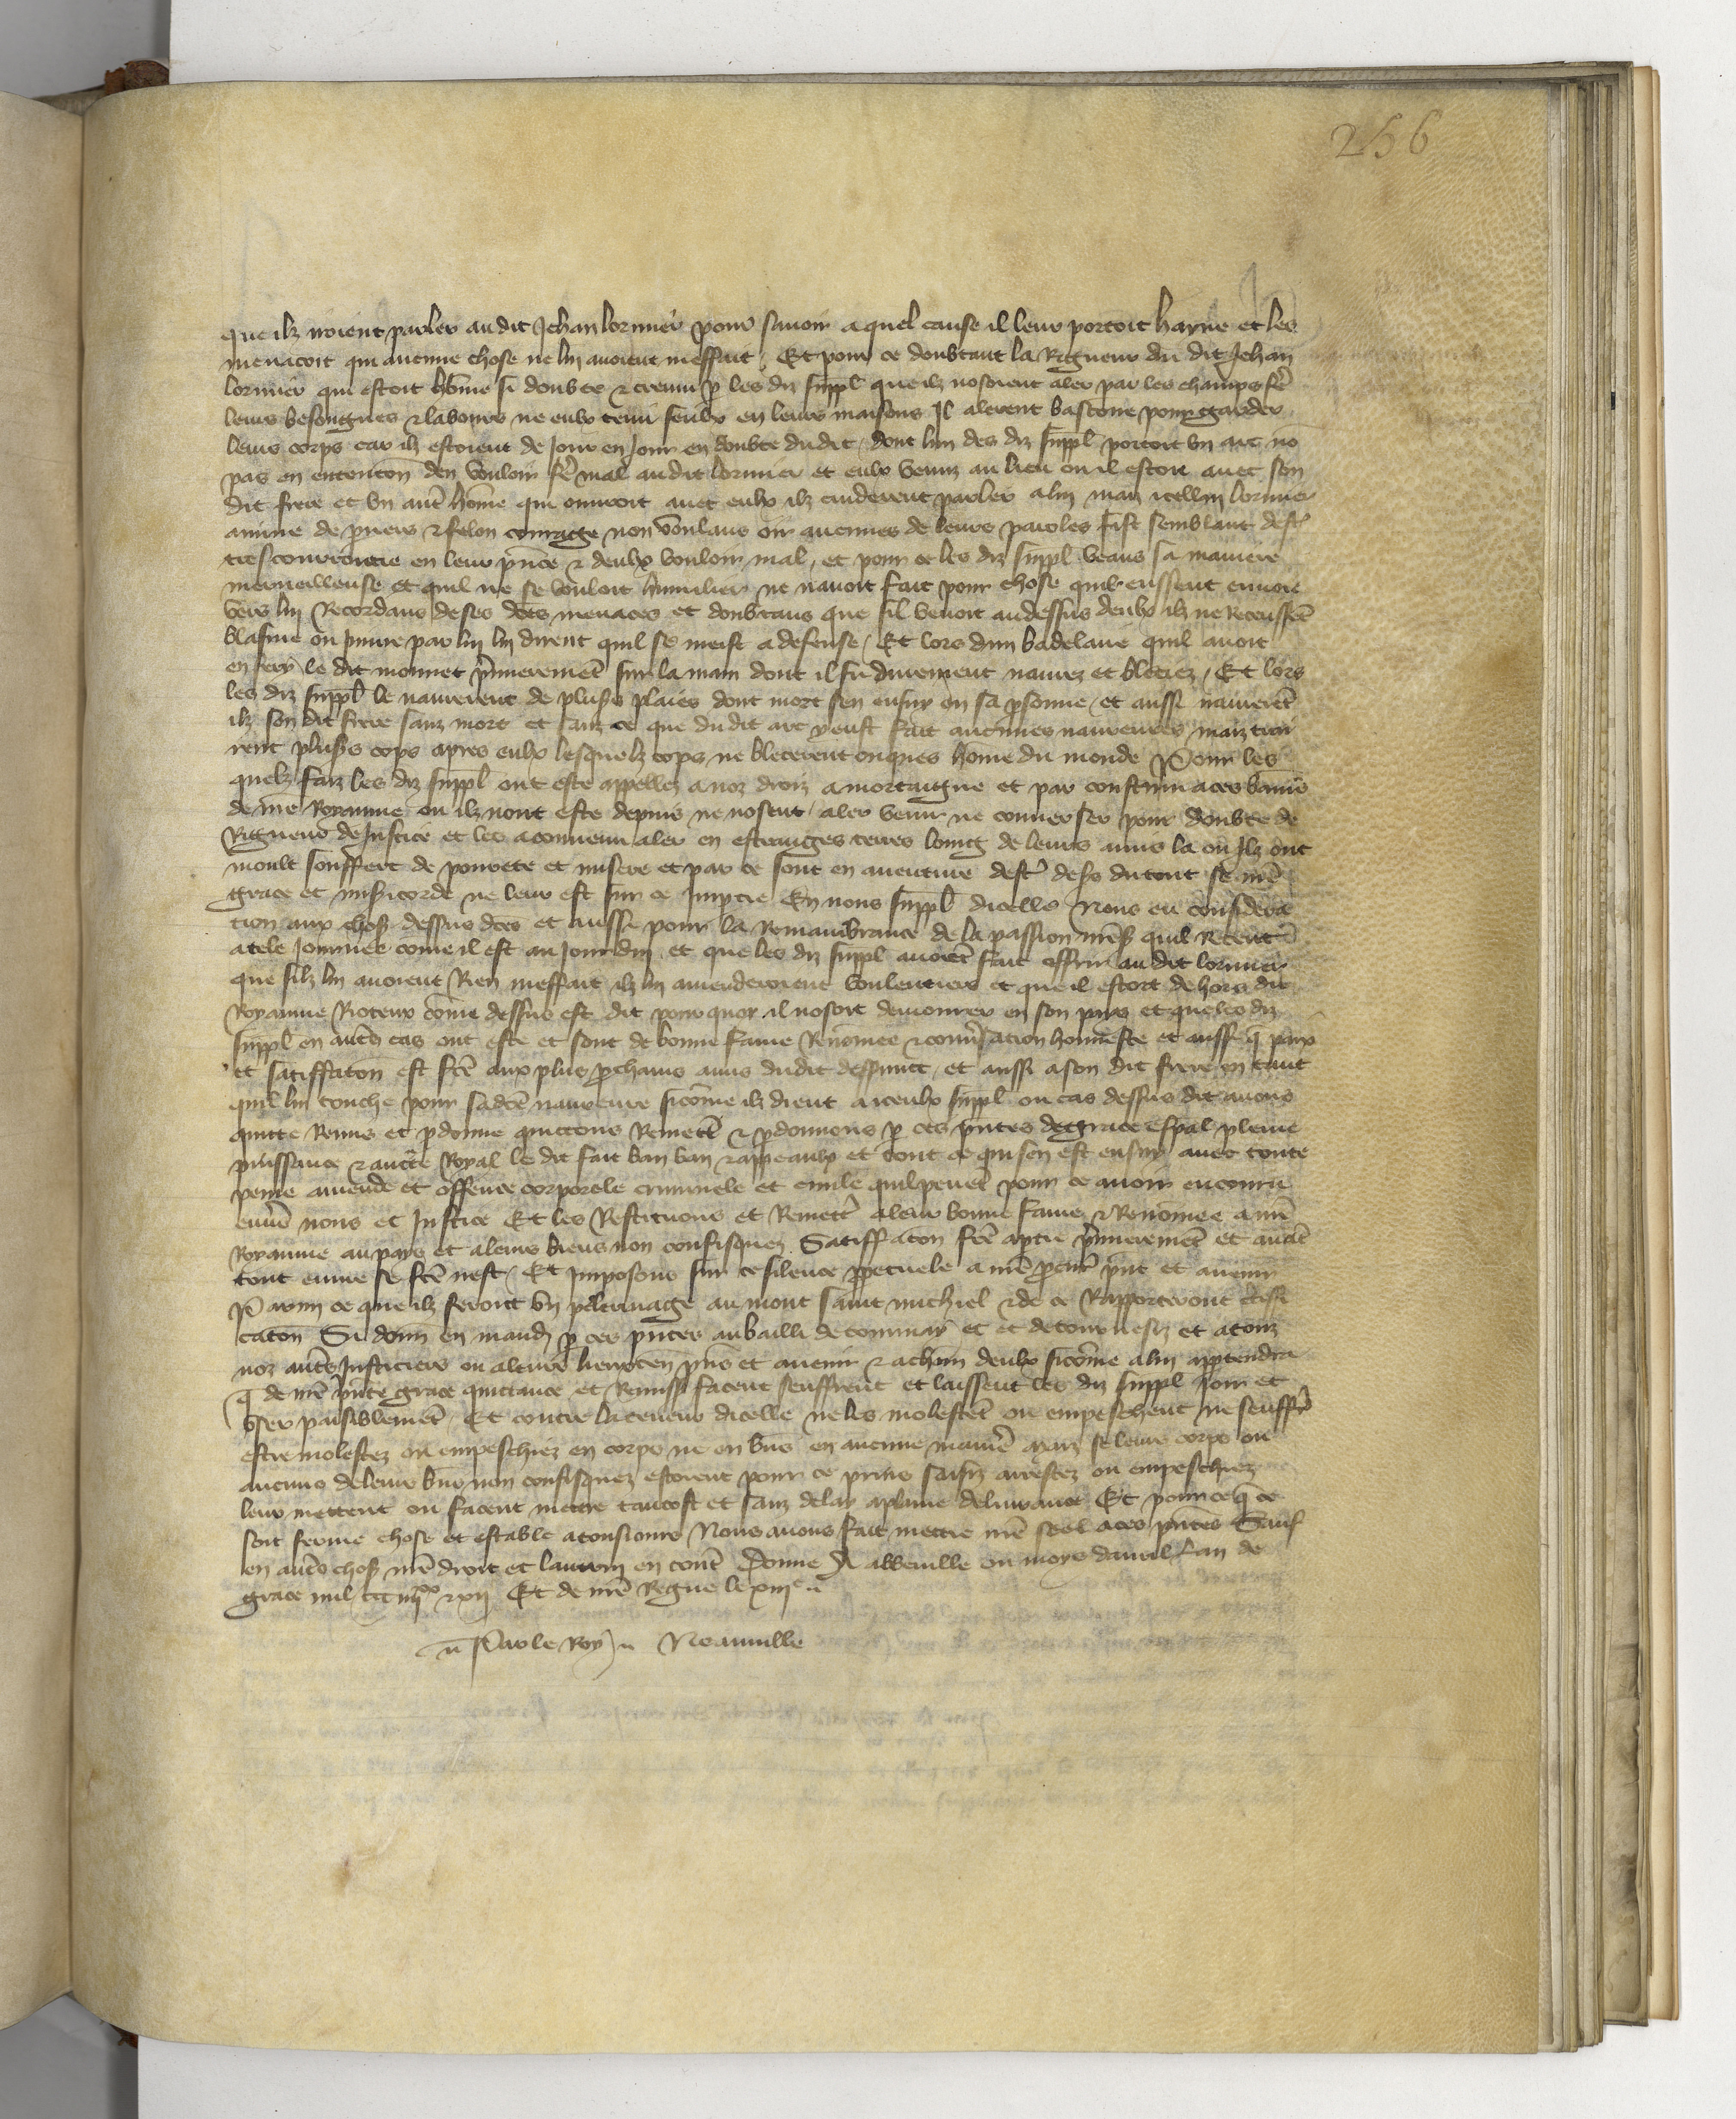 256
que ilz iroient parler audit Jehan lormier pour savoir a quel cause il leur portoit hayne et les
menacoit qui aucune chose ne lui avoient meffait / Et pour ce doubtant la Rigueur du dit Jehan
lormier qui estoit hōme si doubte & cremu p les diz suppl que ilz nosoient aler par les champs fē
leurs besongnes & labours ne eulx tenir seulx en leurs maisons Il alerent bastone pour garder
leurs corps car ilz estoient de Jour en Jour en doubte dudit / dont lun des diz suppl portoit un arc nō
pas en entencōn den vouloir fē mal audit lormier et eulx venuz au lieu ou il estoit avec son
dit frere et un autē hōme qui ouvroit avec eulx ilz cuiderent parler a lui maiz icellui lormier
anime de pvers & felon courage non voulans oir aucunes de leurs paroles fist semblant dest
tres courroucie en leur pnce & deulx vouloir mal, et pour ce les diz suppl veans sa maniere
merveilleuse et quil ne se vouloit humilier ne navoit fait pour chose quilz eussent envoie
vers lui Recordans de ses dcēs menaces et doubtans que sil venoit audessus deulx ilz ne Receussēt
blasme ou Jnnire par lui lui dirent quil se meist a defense / Et lors dun badelaire quil avoit
en fery le dit monnet pmieremēt sur la main dont il fu durement navrez et bleciez / Et lors
les diz suppl le navrerent de plusrs plaies dont mort sen ensuy en sa psonne / et aussi navrerēt
ilz son dit frere sanz mort et sanz ce que du dit arc y eust fait aucunes navreures maiz tire
rent plusrs cops apres eulx lesquelz cops ne blecerent onques home du monde Pour les
quelz faiz les diz suppl ont este appellez a noz droiz a mortaigne et par constumaces baniz
de nrē Royaume ou ilz nont este depuis ne nosent / aler venir ne converser pour doubte de
Rigueur de Justice et les a convenu aler en estranges terres loing de leurs amis la ou Jlz ont
moult souffert de povrete et misere et par ce sont en aventure dest deshs du tout se nrē
grace et misicorde ne leur est sur ce Jmptie En nous suppl dicelle Nous eu considera
cion aux choses dessus dcēs et aussi pour la Remambrance de la passion nrēs quil Receut
a tele Journee come il est au Jourdui et que les diz suppl avoiēt fait offrir au dit lormier
que silz lui avoient Rien meffait ilz lui amenderoient voulentiers et que il estoit de hors du
Royaume Rioteux cōme dessus est dit pour quoy il nosoit demourer en son pais et que les diz
suppl en autēs cas ont este et sont de bonne fame Renōmee & convsation honneste et aussi q paix
et satiffacōn est fcē aux plus pchains amis dudit deffunct / et aussi a son dit frere en tant
quil lui touche pour sa dcē navreure sicōme ilz dient a iceulx suppl ou cas dessus dit avons
quitte Remis et pdonne quictons Remett & pdonnons p ces pntes de grace espal pleine
puissance & aucte Royal le dit fait ban ban & appeaulx et tout ce qui sen est ensuy avec toute
peine amende et offence corporele criminele et civile quil peuent pour ce avoir encouru
envs nous et Justice Et les Restituons et Remett a leur bonne fame & Renōmee a nrē
Royaume au pays et a leurs biens non confisquez Satiffacōn fcē a ptie pmieremēt et avāt
tout euvre se fcē nest / Et Jmposons sur ce silence ppetuele a nrē pcur pnt et avenir
Parmi ce que ilz feront un pelerinage au mont saint michiel & de ce Rapporteront ctifi
cacōn Si donn en mandz p ces pntes au bailli de tournay et de tournesiz et a touz
noz autēs Justiciers ou a leurs lieuxten pns et avenir & a chūn deulx sicōme a lui apptendra
q de nrē pnte grace quictance et Remiss facent seuffrent et laissent les diz suppl Joir et
user paisiblemēt / Et contre la teneur dicelle ne les molestēt ou empeschent ne seuffr
estre molestez ou empeschiez en corps ne en bns en aucune manē Maiz se leurs corps ou
aucuns de leurs bns non confisquez estoient pour ce prins saisiz arrestez ou empeschiez
leur mettent ou facent mettre tantost et sanz delay a plaine delivrance Et pour ce q ce
soit ferme chose et estable a tousiours Nous avons fait mettre nrē seel a ces pntes Sauf
en autēs choses nrē droit et lautruy en toutēs Donne A abbeville ou moys davril Lan de
grace mil ccc iiiixx & xii Et de nrē Regne le xiie
Par le Roy Neauville